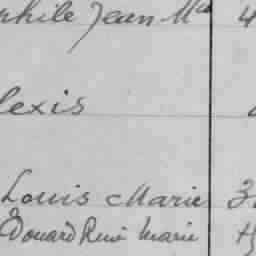 phile Jean Mie 4
lexis
Louis Marie 3
Edouard René Marie